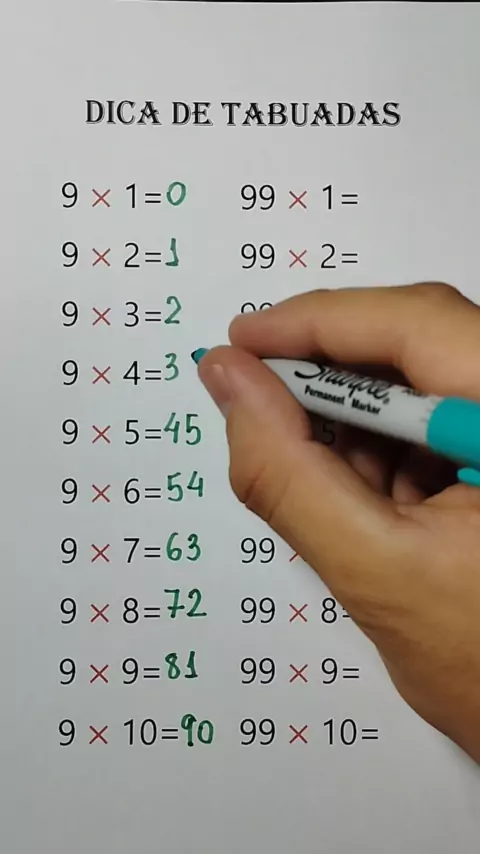 DICA DE TABUADAS
9 × 1=0 99 × 1=
9 × 2=1 99 × 2=
9 × 3=2 99
9 × 4=3
9 × 5=45 5
9 × 6=54
9 × 7=63 99 ×
9 × 8=72 99 × 8=
9 × 9=81 99 × 9=
9 × 10=90 99 × 10=
Sharpie
Permanent Marker